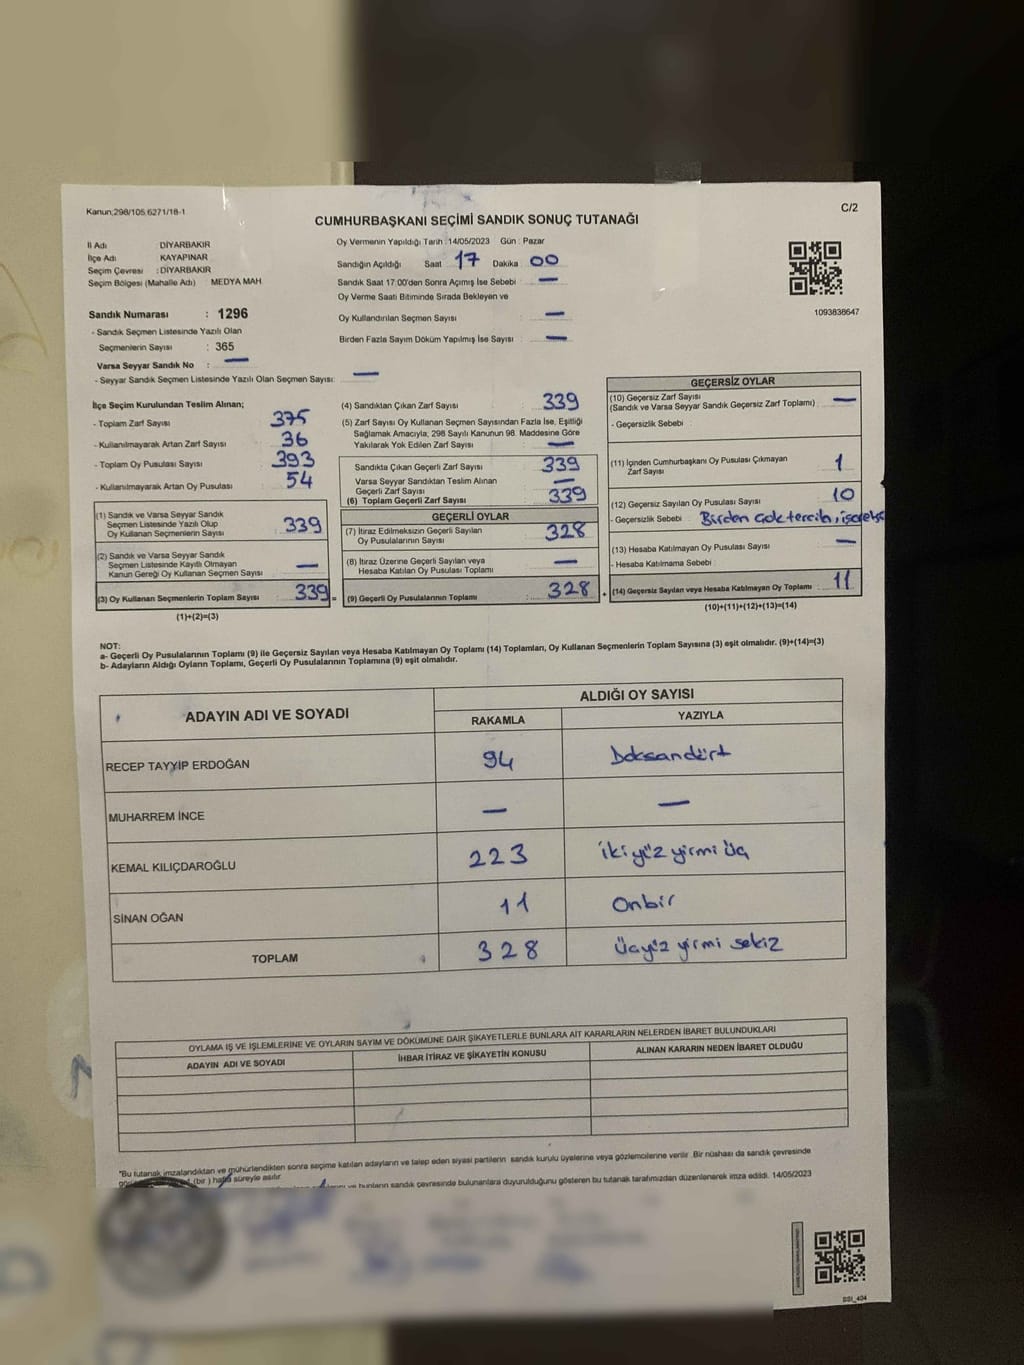 Kanun;298/105,6271/18-1
C/2
CUMHURBAŞKANI SEÇİMİ SANDIK SONUÇ TUTANAĞI
İl Adı : DİYARBAKIR
İlçe Adı : KAYAPINAR
Seçim Çevresi : DİYARBAKIR
Seçim Bölgesi (Mahalle Adı) MEDYA MAH.
Oy Vermenin Yapıldığı Tarih : 14/05/2023 Gün : Pazar
Sandığın Açıldığı Saat 17 Dakika : 00
Sandık Saat 17:00'den Sonra Açımış İse Sebebi : —
Oy Verme Saati Bitiminde Sırada Bekleyen ve
Oy Kullandırılan Seçmen Sayısı : —
Birden Fazla Sayım Döküm Yapılmış İse Sayısı : —
1093838647
Sandık Numarası : 1296
- Sandık Seçmen Listesinde Yazılı Olan
Seçmenlerin Sayısı : 365
Varsa Seyyar Sandık No : —
- Seyyar Sandık Seçmen Listesinde Yazılı Olan Seçmen Sayısı: —
İlçe Seçim Kurulundan Teslim Alınan;
- Toplam Zarf Sayısı : 375
- Kullanılmayarak Artan Zarf Sayısı : 36
- Toplam Oy Pusulası Sayısı : 393
- Kullanılmayarak Artan Oy Pusulası : 54
(1) Sandık ve Varsa Seyyar Sandık
Seçmen Listesinde Yazılı Olup
Oy Kullanan Seçmenlerin Sayısı : 339
(2) Sandık ve Varsa Seyyar Sandık
Seçmen Listesinde Kayıtlı Olmayan
Kanun Gereği Oy Kullanan Seçmen Sayısı : —
(3) Oy Kullanan Seçmenlerin Toplam Sayısı : 339 =
(1)+(2)=(3)
(4) Sandıktan Çıkan Zarf Sayısı : 339
(5) Zarf Sayısı Oy Kullanan Seçmen Sayısından Fazla İse, Eşitliği
Sağlamak Amacıyla, 298 Sayılı Kanunun 98. Maddesine Göre
Yakılarak Yok Edilen Zarf Sayısı : —
Sandıkta Çıkan Geçerli Zarf Sayısı : 339
Varsa Seyyar Sandıktan Teslim Alınan
Geçerli Zarf Sayısı : —
(6) Toplam Geçerli Zarf Sayısı : 339
GEÇERLİ OYLAR
(7) İtiraz Edilmeksizin Geçerli Sayılan
Oy Pusulalarının Sayısı : 328
(8) İtiraz Üzerine Geçerli Sayılan veya
Hesaba Katılan Oy Pusulası Toplamı : —
(9) Geçerli Oy Pusulalarının Toplamı : 328 +
GEÇERSİZ OYLAR
(10) Geçersiz Zarf Sayısı
(Sandık ve Varsa Seyyar Sandık Geçersiz Zarf Toplamı) : —
- Geçersizlik Sebebi :
(11) İçinden Cumhurbaşkanı Oy Pusulası Çıkmayan
Zarf Sayısı : 1
(12) Geçersiz Sayılan Oy Pusulası Sayısı : 10
- Geçersizlik Sebebi : Birden Çok tercih,
(13) Hesaba Katılmayan Oy Pusulası Sayısı : —
- Hesaba Katılmama Sebebi :
(14) Geçersiz Sayılan veya Hesaba Katılmayan Oy Toplamı : 11
(10)+(11)+(12)+(13)=(14)
NOT:
a- Geçerli Oy Pusulalarının Toplamı (9) ile Geçersiz Sayılan veya Hesaba Katılmayan Oy Toplamı (14) Toplamları, Oy Kullanan Seçmenlerin Toplam Sayısına (3) eşit olmalıdır. (9)+(14)=(3)
b- Adayların Aldığı Oyların Toplamı, Geçerli Oy Pusulalarının Toplamına (9) eşit olmalıdır.
ADAYIN ADI VE SOYADI ALDIĞI OY SAYISI
RAKAMLA YAZIYLA
RECEP TAYYİP ERDOĞAN 94 Doksandört
MUHARREM İNCE — —
KEMAL KILIÇDAROĞLU 223 ikiyüz yirmi üç
SİNAN OĞAN 11 Onbir
TOPLAM 328 Üçyüz yirmi sekiz
OYLAMA İŞ VE İŞLEMLERİNE VE OYLARIN SAYIM VE DÖKÜMÜNE DAİR ŞİKAYETLERLE BUNLARA AİT KARARLARIN NELERDEN İBARET BULUNDUKLARI
ADAYIN ADI VE SOYADI İHBAR İTİRAZ VE ŞİKAYETİN KONUSU ALINAN KARARIN NEDEN İBARET OLDUĞU
"Bu tutanak imzalandıktan ve mühürlendikten sonra seçime katılan adayların ve talep eden siyasi partilerin sandık kurulu üyelerine veya gözlemcilerine verilir .Bir nüshası da sandık çevresinde
(bir ) hafta süreyle asılır
ve bunların sandık çevresinde bulunanlara duyurulduğunu gösteren bu tutanak tarafımızdan düzenlenerek imza edildi. 14/05/2023
SSI_404